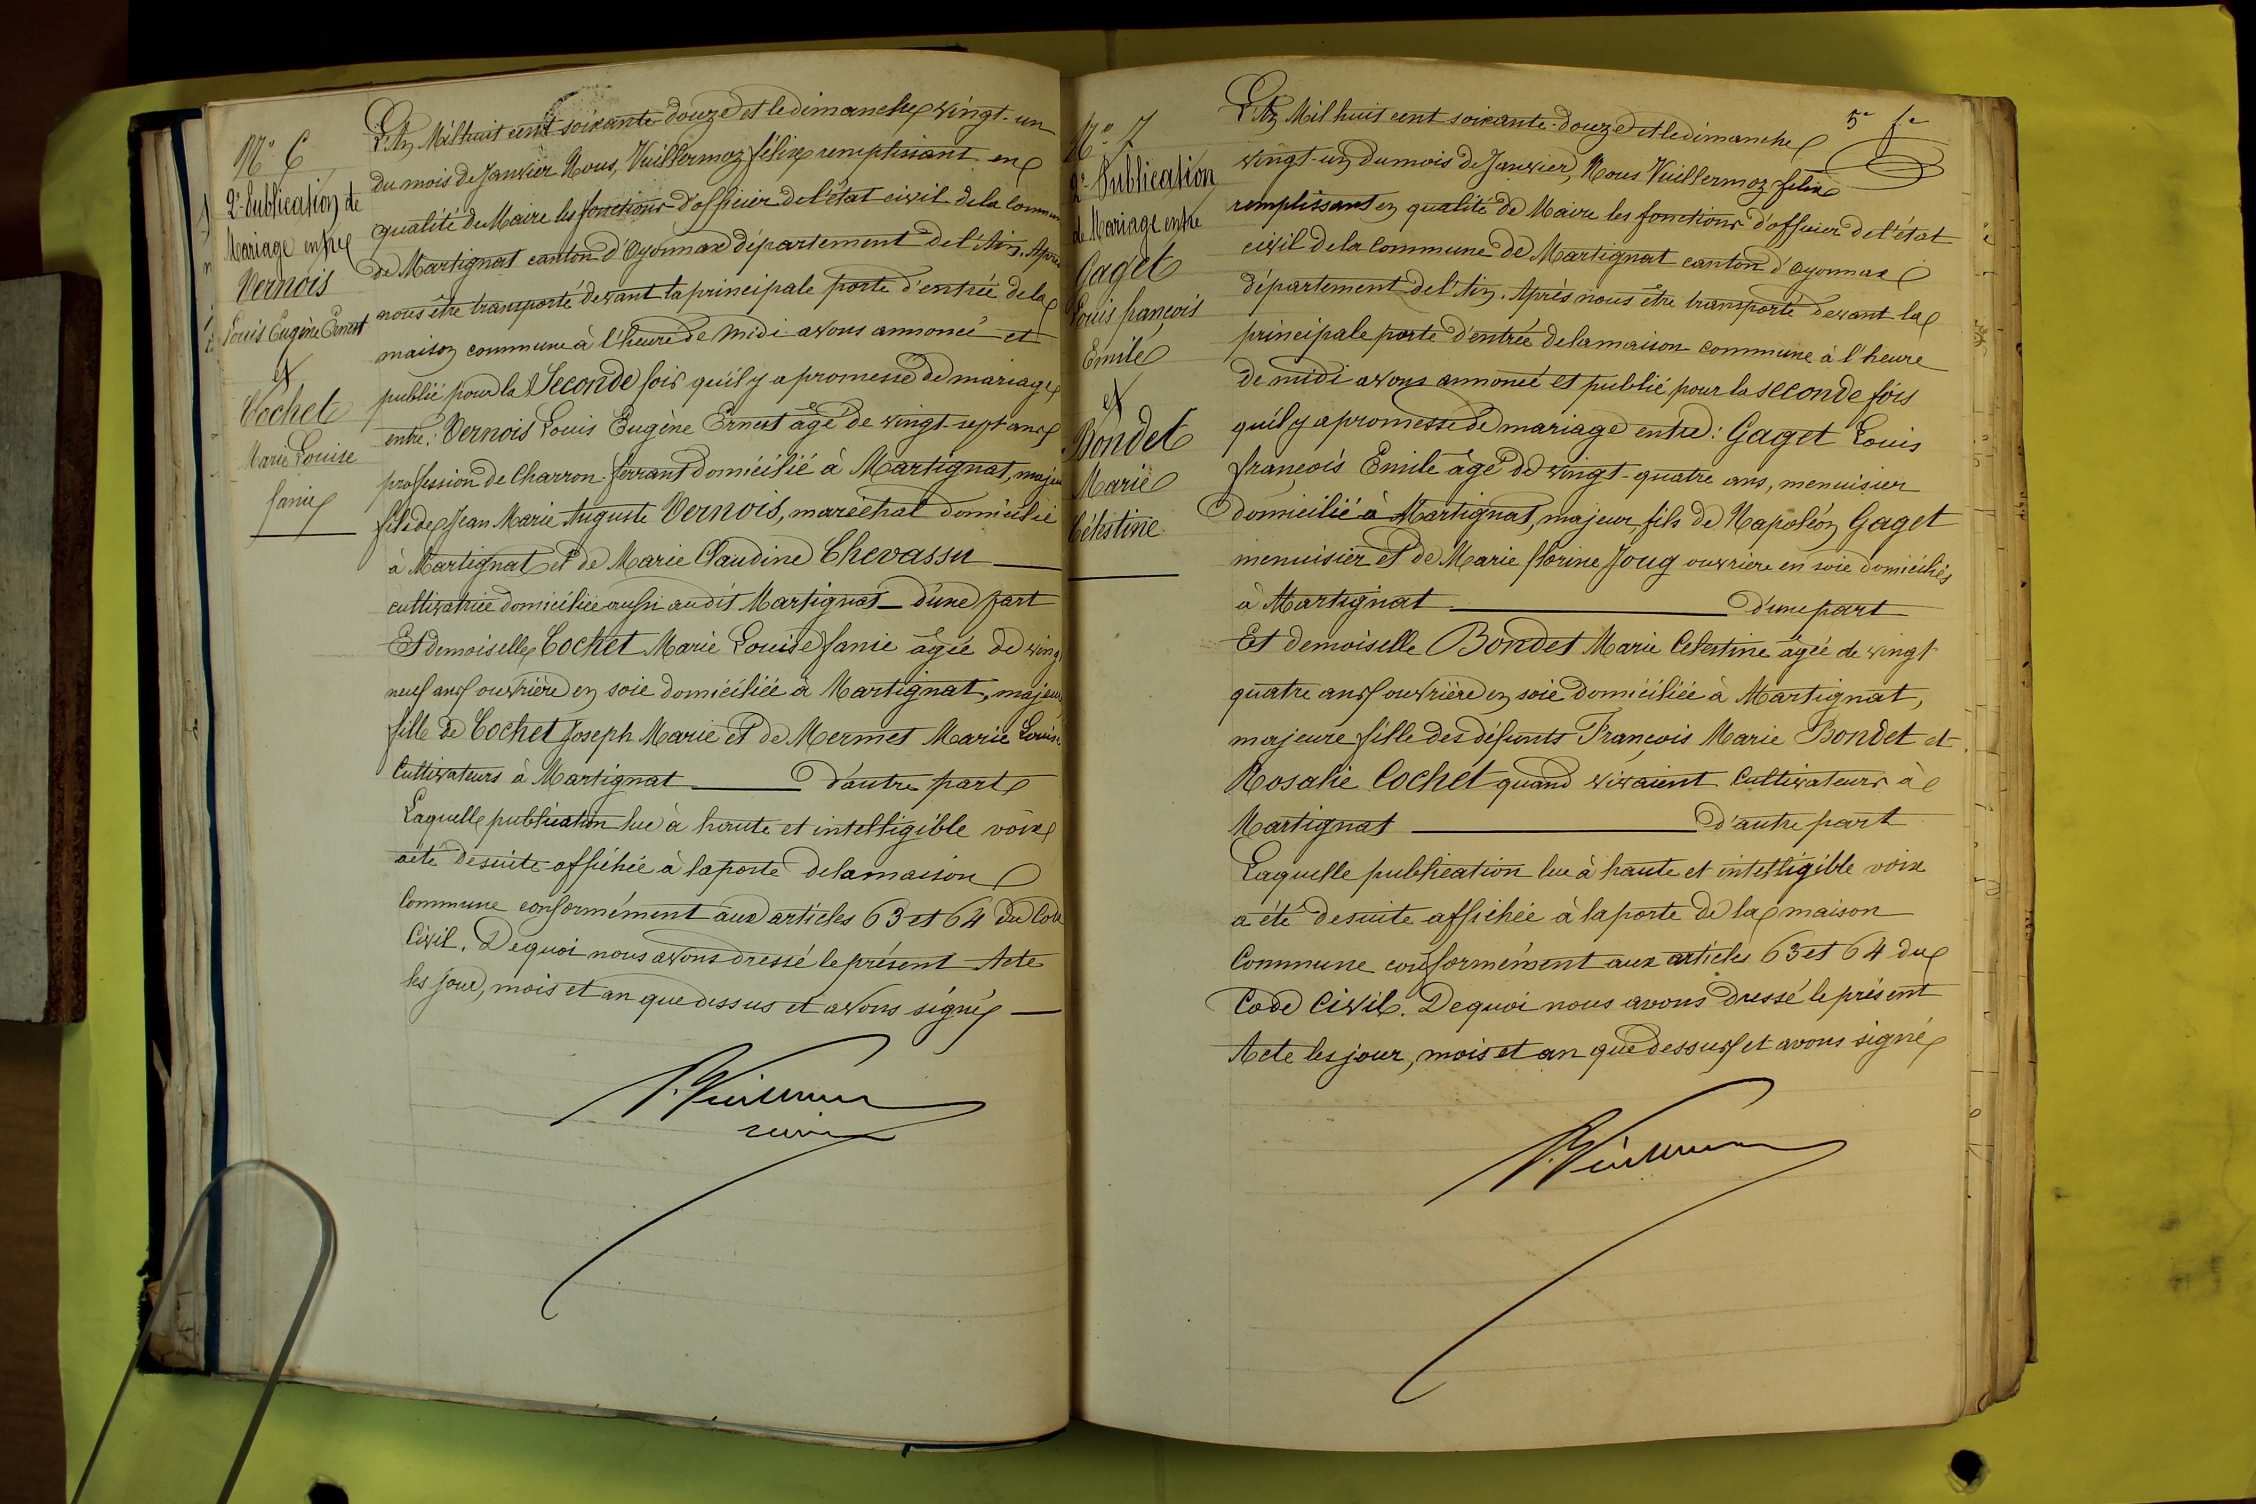 N° 6
2e Publication de
Mariage entre
Vernois
Louis Eugène Ernest
et
Cochet
Marie Louise
fanie
L'An Mil huit cent soixante douze et le dimanche vingt-un
du mois de Janvier Nous, Vuillermoz félix remplissant en
qualité de Maire les fonctions d'officier de l'état civil de la Commune
de Martignat canton d'Oyonnax département de l'Ain. Après
nous être transporté devant la principale porte d'entrée de la
maison commune à l'heure de midi avons annoncé et
publié pour la Seconde fois qu'il y a promesse de mariage
entre: Vernois Louis Eugène Ernest âgé de vingt-sept ans
profession de Charron-ferrant domicilié à Martignat, majeur
fils de Jean Marie Auguste Vernois, maréchal domicilié
à Martignat et de Marie Claudine Chevassu
cultivatrice domiciliée aussi audit Martignat d'une part
Et demoiselle Cochet Marie Louise fanie âgée de vingt
neuf ans ouvrière en soie domiciliée à Martignat, majeure
fille de Cochet Joseph Marie et de Mermet Marie Louise
Cultivateurs à Martignat d'autre part
Laquelle publication lue à haute et intelligible voix
a été de suite affichée à la porte de la maison
Commune conformément aux articles 63 et 64 du Code
Civil. De quoi nous avons dressé le présent Acte
les jour, mois et an que dessus et avons signé
5e fe
N° 7
2e Publication
de Mariage entre
Gaget
Louis françois
Emile
et
Bondet
Marie
Célestine
L'An Mil huit cent soixante-douze et le dimanche
vingt-un du mois de Janvier, Nous Vuillermoz félix
remplissant en qualité de Maire les fonctions d'officier de l'état
civil de la Commune de Martignat canton d'Oyonnax
département de l'Ain. Après nous être transporté devant la
principale porte d'entrée de la maison commune à l'heure
de midi avons annoncé et publié pour la seconde fois
qu'il y a promesse de mariage entre: Gaget Louis
françois Emile âgé de vingt-quatre ans, menuisier
domicilié à Martignat, majeur fils de Napoléon Gaget
menuisier et de Marie florine Joug ouvrière en soie domiciliés
à Martignat d'une part
Et demoiselle Bondet Marie Célestine âgée de vingt
quatre ans ouvrière en soie domiciliée à Martignat,
majeure fille des défunts François Marie Bondet et
Rosalie Cochet quand vivaient Cultivateurs à
Martignat d'autre part
Laquelle publication lue à haute et intelligible voix
a été de suite affichée à la porte de la maison
Commune conformément aux articles 63 et 64 du
Code Civil. De quoi nous avons dressé le présent
Acte les jour, mois et an que dessus et avons signé